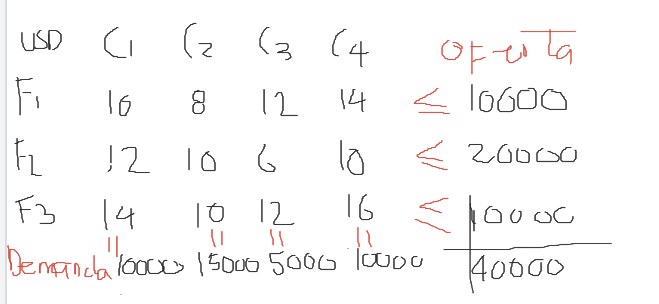 USD C1 C2 C3 C4 Oferta
F1 10 8 12 14 ≤ 10000
F2 12 10 6 10 ≤ 20000
F3 14 10 12 16 ≤ 10000
Demanda 10000 15000 5000 10000 40000